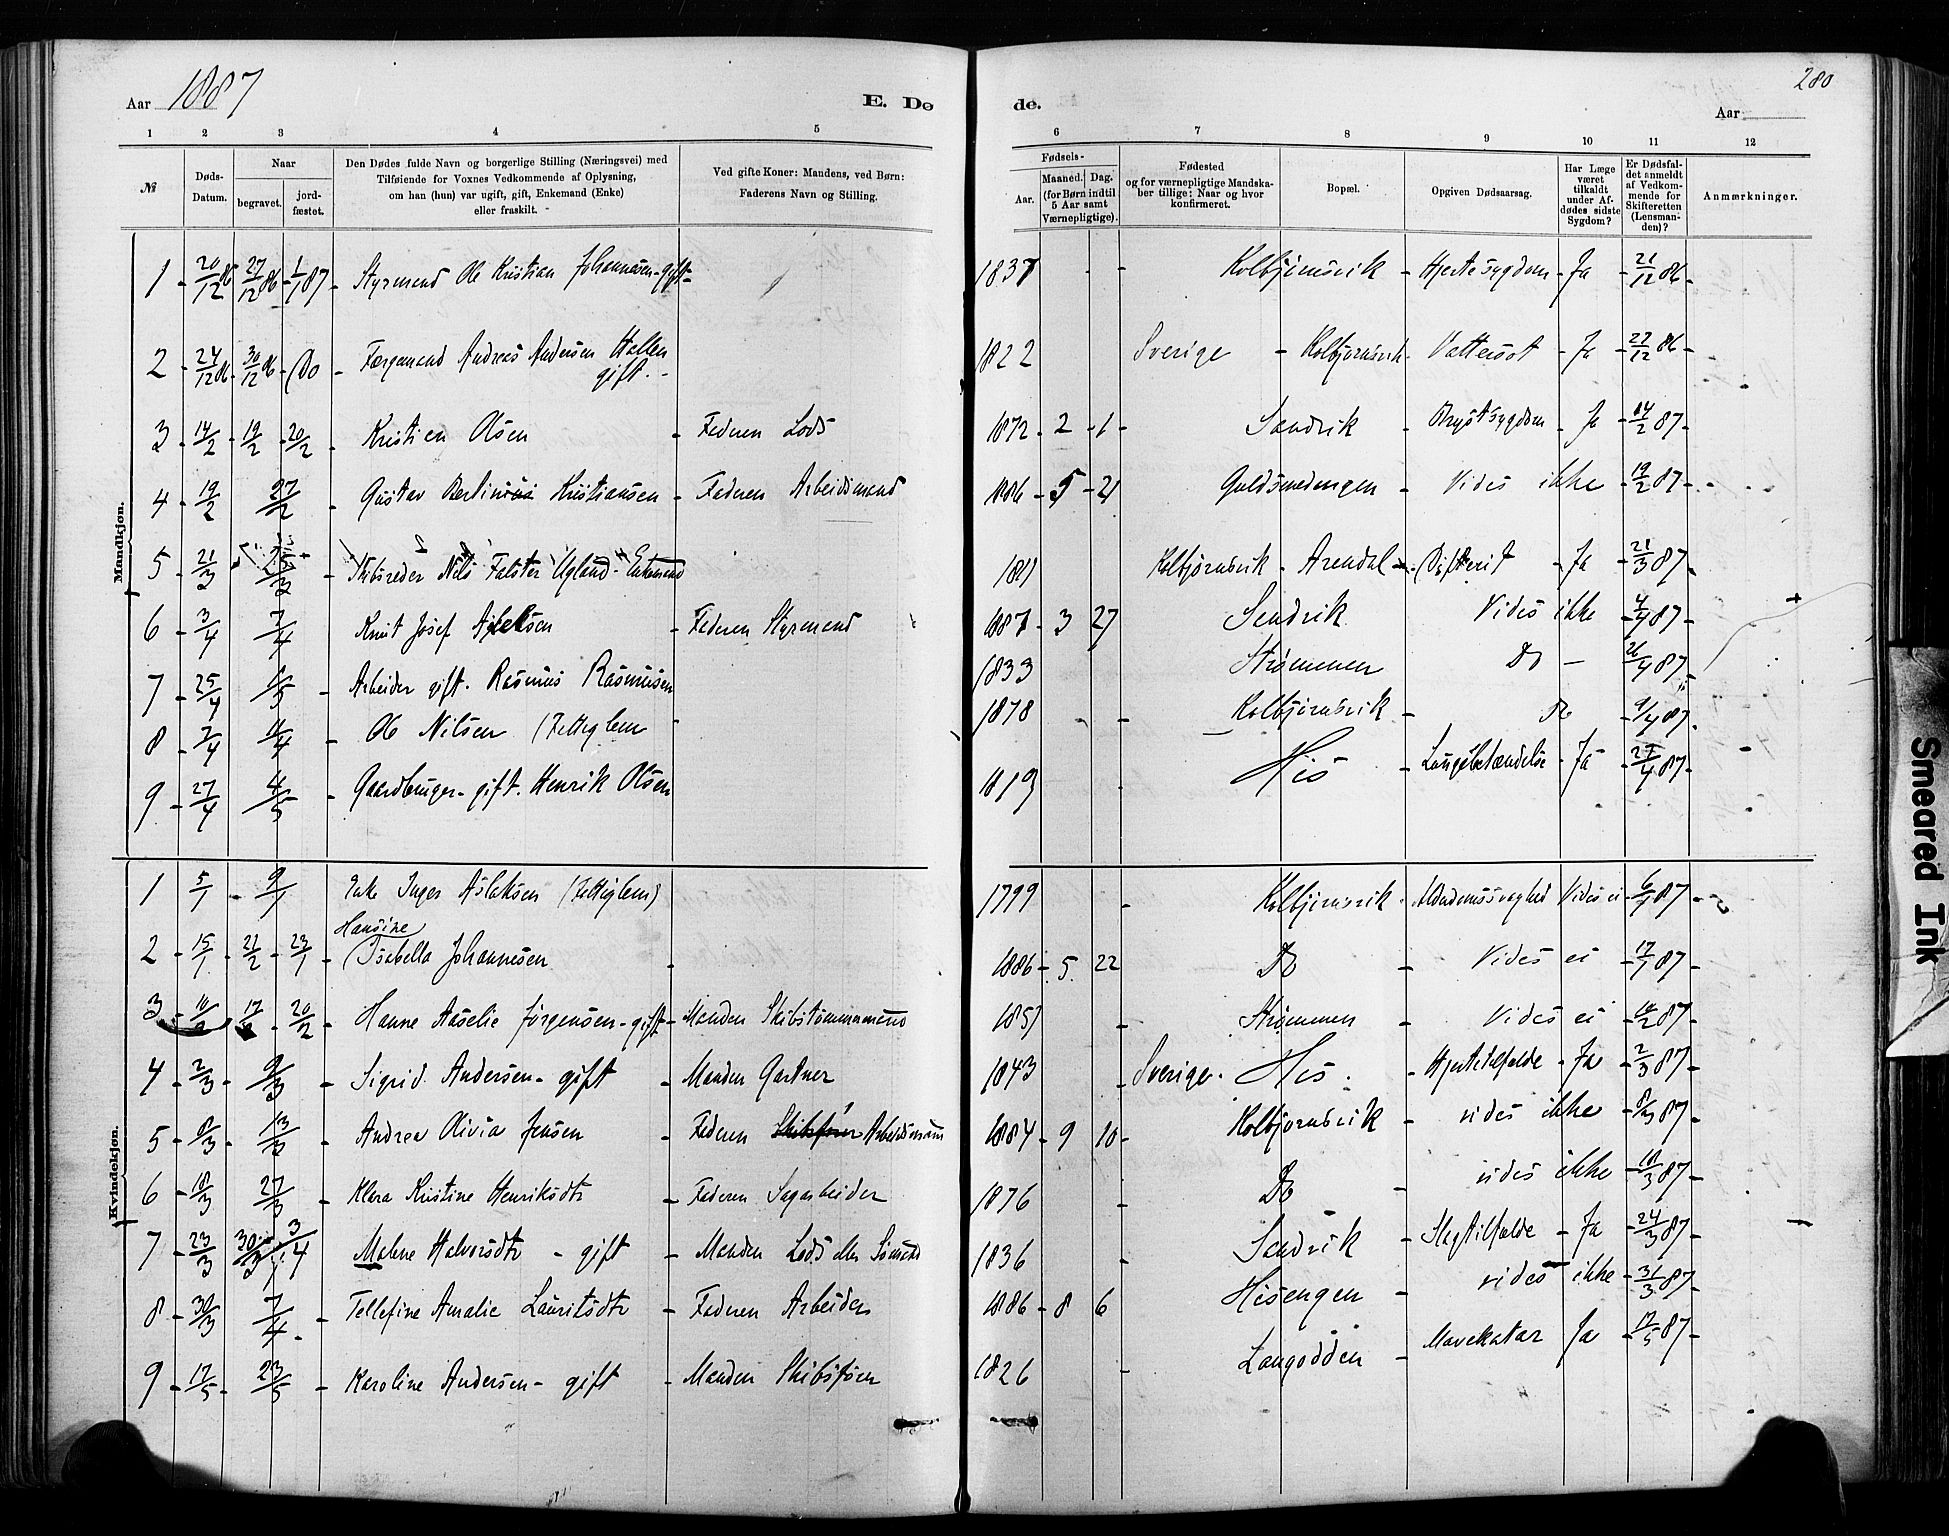 280
Aar 1887
E. Dø
de.
Aar
1 2 3 4 5 6 7 8 9 10 11 12
№
Døds-Datum.
Naar
begravet.
jord-fæstet.
Den Dødes fulde Navn og borgerlige Stilling (Næringsvei) med
Tilføiende for Voxnes Vedkommende af Oplysning,
om han (hun) var ugift, gift, Enkemand (Enke)
eller fraskilt.
Ved gifte Koner: Mandens, ved Børn:
Faderens Navn og Stilling.
Fødsels-
Aar.
Maaned. Dag.
(for Børn indtil
5 Aar samt
Værnepligtige).
Fødested
og for værnepligtige Mandska-
ber tillige: Naar og hvor
konfirmeret.
Bopæl.
Opgiven Dødsaarsag.
Har Læge
været
tilkaldt
under Af-
dødes sidste
Sygdom?
Er Dødsfal-
det anmeldt
af Vedkom-
mende for
Skifteretten
(Lensman-
den)?
Anmærkninger.
Mandkjøn.
1 - 20/12 86 27/12 86 1/1 87 - Styrmand Ole Kristian Johannesen - gift - 1837 - Kolbjørnsvik - Hjertesygdom - Ja - 21/12 86 -
2 - 24/12 86 - 30/12 86 - Do - Færgemand Andreas Andersen Hallen gift. - 1822 Sverige - Kolbjørnsvik - Vattersot - Ja - 27/12 86 -
3 - 14/2 - 19/2 - 20/2 - Kristian Olsen - Faderen Lods 1872 - 2 - 1 - Sandvik - Brystsygdom - Ja - 14/2 87 -
4 - 19/2 27/2 - Gustav Bertinius Kristiansen - Faderen Arbeidsmand 1886 - 5 - 21 Guldsmedengen - Vides ikke - 19/2 87 -
5 - 21/3 Skibsreder Nils Falster Ugland - Enkemand 1811 Kolbjørnsvik - Arendal - Difterit - Ja - 21/3 87 -
6 - 3/4 7/4 Knut Josef Axelsen - Faderen Styrmand 1887 - 3 27 Sandvik Vides ikke 4/4 87 -
7 - 25/4 1/5 - Arbeider gift. Rasmus Rasmussen 1833 Strømmen Do - 26/4 87
8 - 7/4 11/4 - Ole Nilsen (Fattiglem - 1878 - Kolbjørnsvik - Do 9/4 87
9 - 27/4 4/5 - Gaardbruger - gift. Henrik Olsen 1819 His - Lungebetændelse - Ja - 27/4 87 -
Kvindekjøn.
1 5/1 - 9/1 Enke Inger Aslaksen (Fattiglem) 1799 - Kolbjørnsvik - Alderdomssvaghed Vides ei 6/1 87 -
Hansine
2 - 15/1 - 21/2 - 23/1 - Isabella Johannesen - 1886 - 5 22 Do - Vides ei - 17/1 87 -
3 - 10/2 17/2 - 20/2 - Hanne Aaselie Jørgensen - gift - Manden Skibstømmermand 1857 Strømmen - Vides ei - 14/2 87 -
4 - 2/3 - 9/3 - Sigrid Andersen - gift - Manden Gartner 1843 - Sverige - His - Hjertetilfælde - Ja - 2/3 87 -
5 - 8/3 - 13/3 - Andrea Olivia Jensen - Faderen Skibsfører Arbeidsmann 1884 - 9 10 - Kolbjørnsvik - vides ikke - 8/3 87 -
6 - 18/3 27/3 - Klara Kristine Henriksdtr - Faderen Sagarbeider 1876 - Do - vides ikke - 18/3 87 -
7 - 23/3 30/3 3/4 - Malene Halvorsdtr - gift - Manden Lods eller Sømand 1836 - Sandvik - Slagtilfælde - Ja - 24/3 87 -
8 - 30/3 7/4 - Tellefine Amalie Lauritsdtr - Faderen Arbeider 1886 - 8 6 Hisengen - vides ikke - 31/3 87 -
9 - 17/5 - 23/5 - Karoline Andersen - gift - Manden Skibsfører 1826 - Langodden - Mavekatar Ja - 17/5 87 -
Smeared Ink